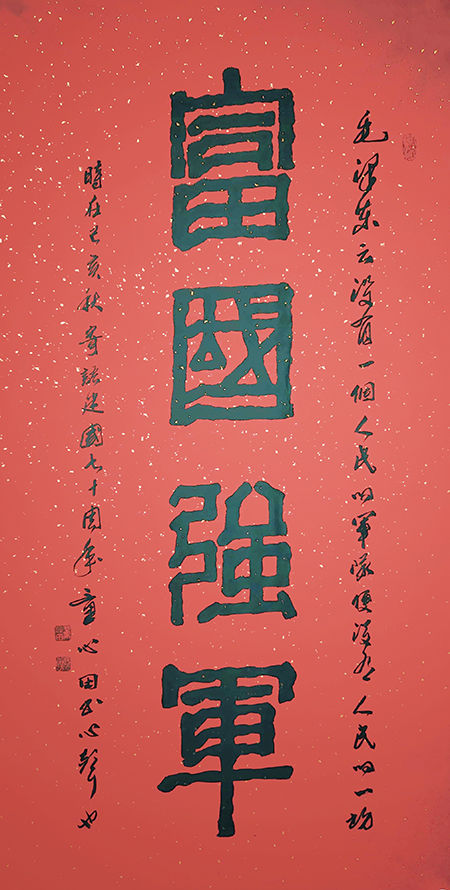 毛澤東云沒有一個人民的軍隊便沒有人民的一切
富國強軍
時在己亥秋寄語建國七十周年童心田书心聲也